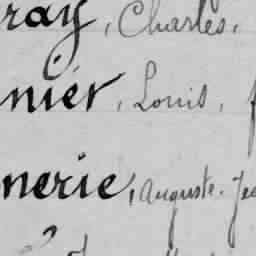 ray, Charles,
nier, Louis,
nerie, Auguste. Jea